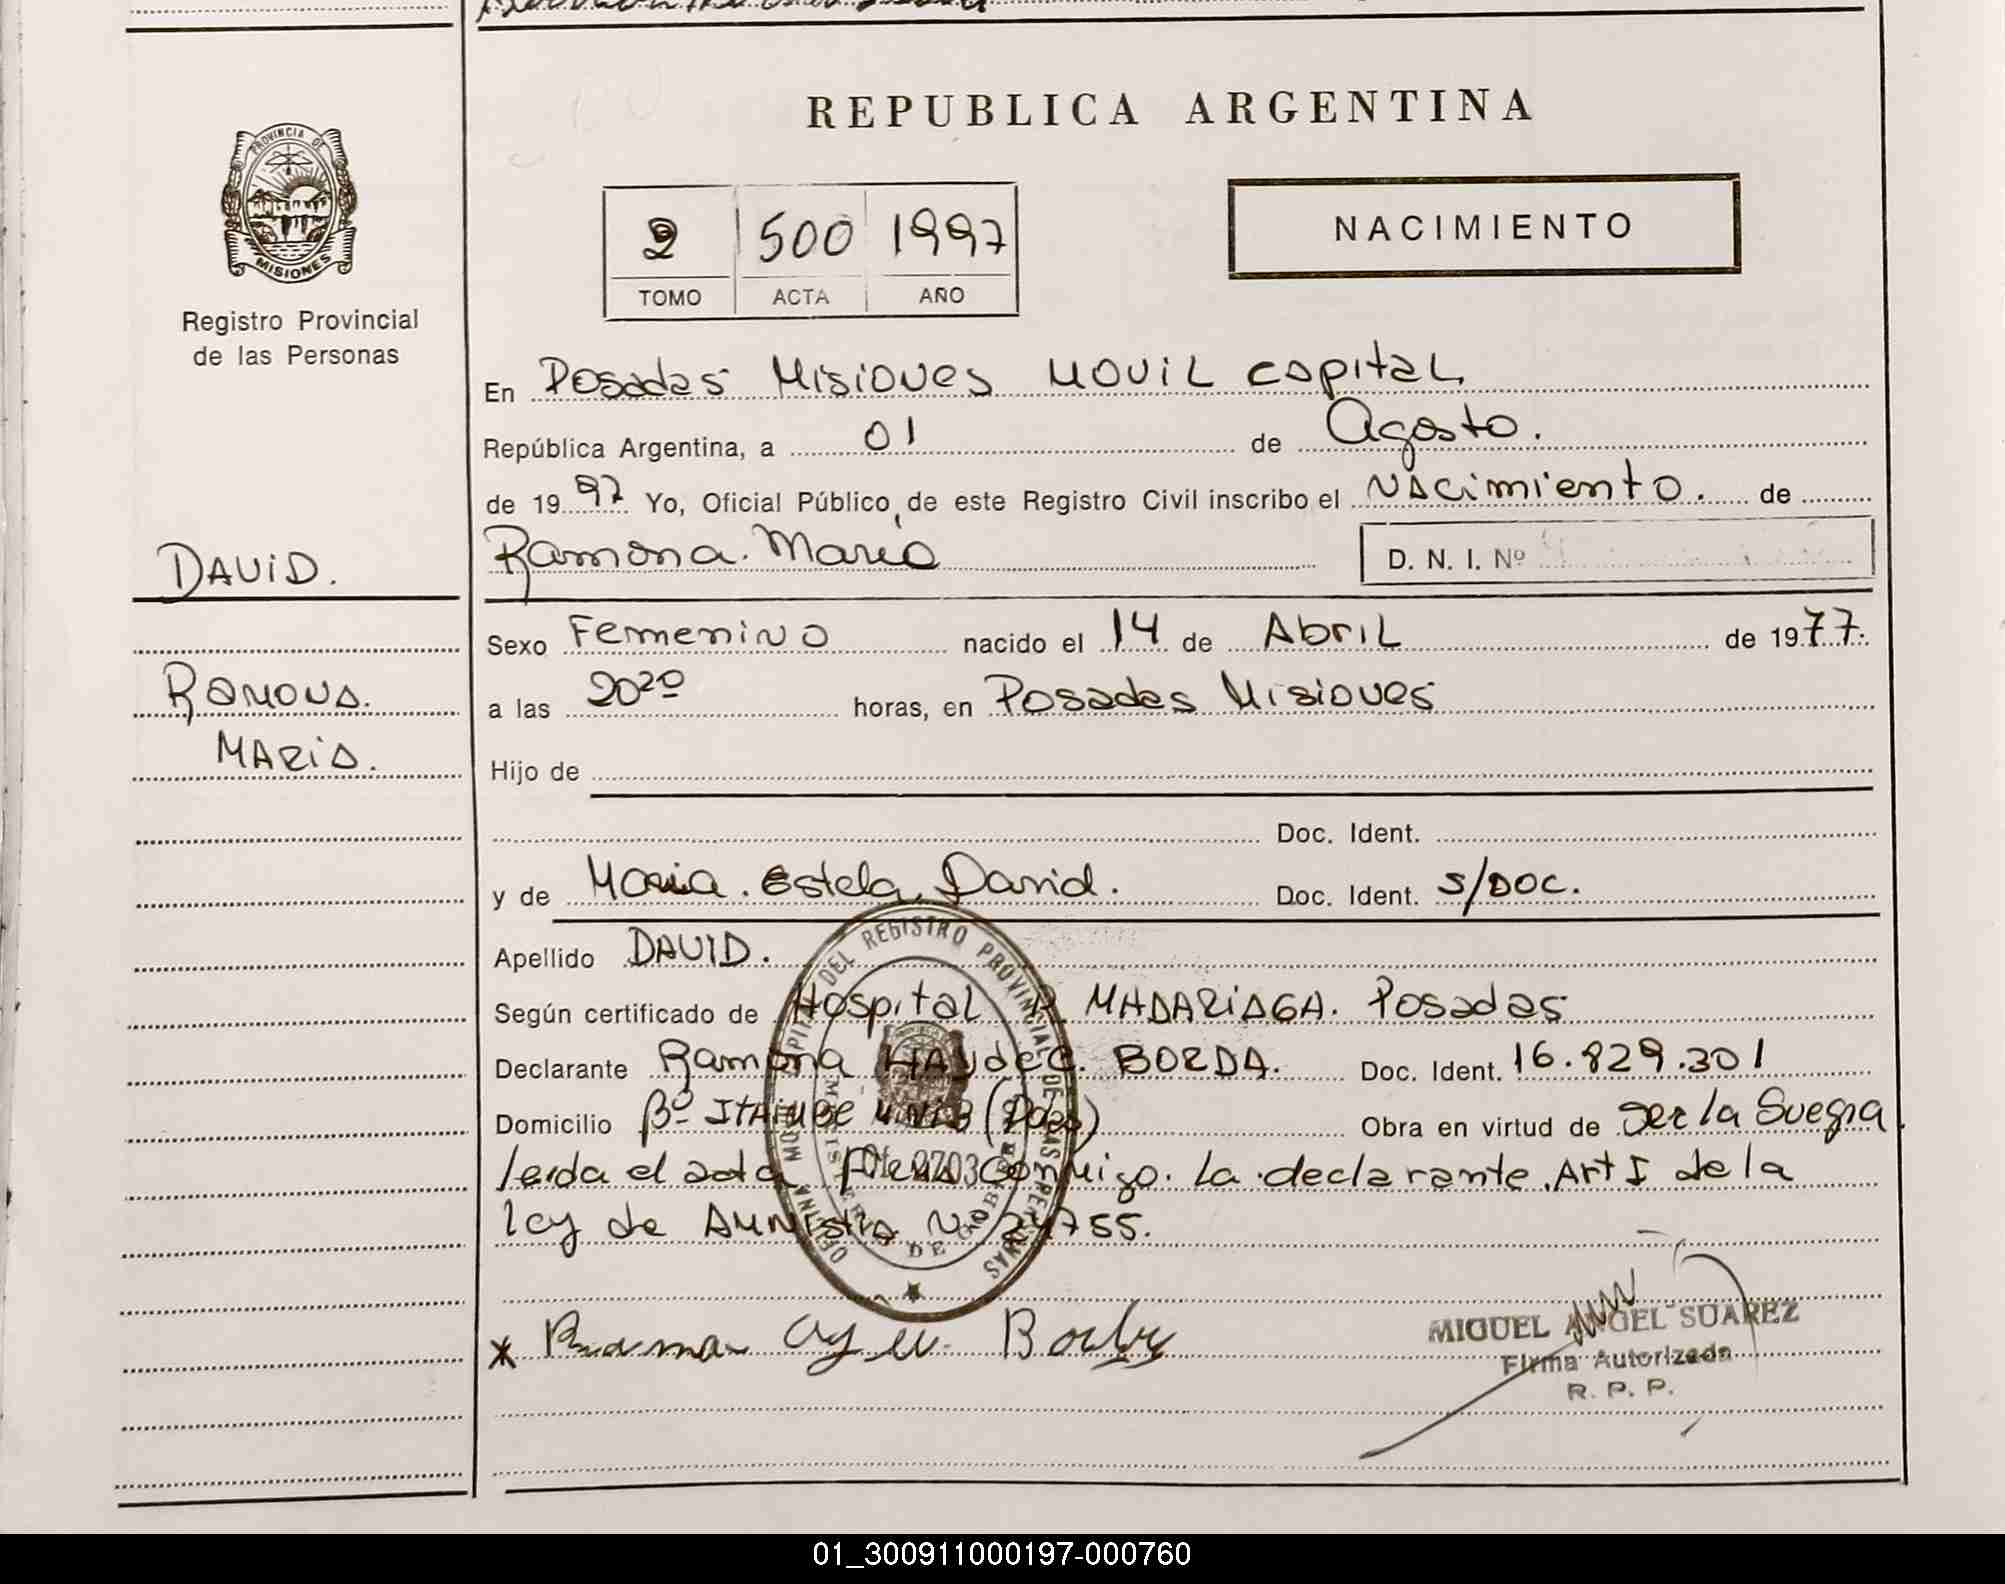 REPUBLICA ARGENTINA
PROVINCIA DE
MISIONES
Registro Provincial
de las Personas
2 500 1997
TOMO ACTA AÑO
NACIMIENTO
En Posadas Misiones Movil Capital
República Argentina, a 01 de Agosto.
de 1997 Yo, Oficial Público de este Registro Civil inscribo el Nacimiento. de
DAVID.
Ramona. Maria
D. N. I. Nº
Sexo Femenino nacido el 14 de Abril de 1977.
Ramona.
Maria.
a las 20²⁰ horas, en Posadas Misiones
Hijo de
Doc. Ident.
y de Maria. Estela David. Doc. Ident. S/DOC.
Apellido DAVID.
Según certificado de Hospital R. MADARIAGA. Posadas
Declarante Ramona HAYdeé. BORDA. Doc. Ident. 16.829.301
Domicilio Bº ITAIMBE (Pdas) Obra en virtud de ser la Suegra
leida el acta Firma conmigo. La declarante. Art I de la
ley de AMNistia Nº 24755.
OFICINA MOVIL DEL REGISTRO PROVINCIAL DE LAS PERSONAS
MINISTERIO DE GOBIERNO
Borda
MIGUEL ANGEL SUAREZ
Firma Autorizada
R. P. P.
01_300911000197-000760